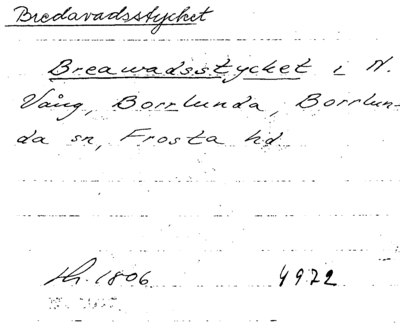 Bredavadsstycket
Breawadsstycket i N.
Vång, Borrlunda, Borrlun-
da sn, Frosta hd
1806
4972